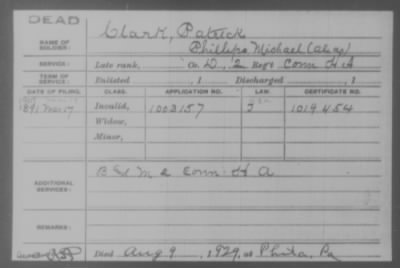 DEAD
NAME OF SOLDIER: Clark, Patrick
Phillips Michael (alias)
SERVICE: Late rank, Co. D, 2 Reg't Conn H A
TERM OF SERVICE: Enlisted , 1 Discharged , 1
DATE OF FILING. CLASS. APPLICATION NO. LAW. CERTIFICATE NO.
1891 Mar 17 Invalid, 1003157 J 1019454
Widow,
Minor,
ADDITIONAL SERVICES: B & M 2 Conn H A
REMARKS:
Died Aug 9, 1929, at Phila, Pa